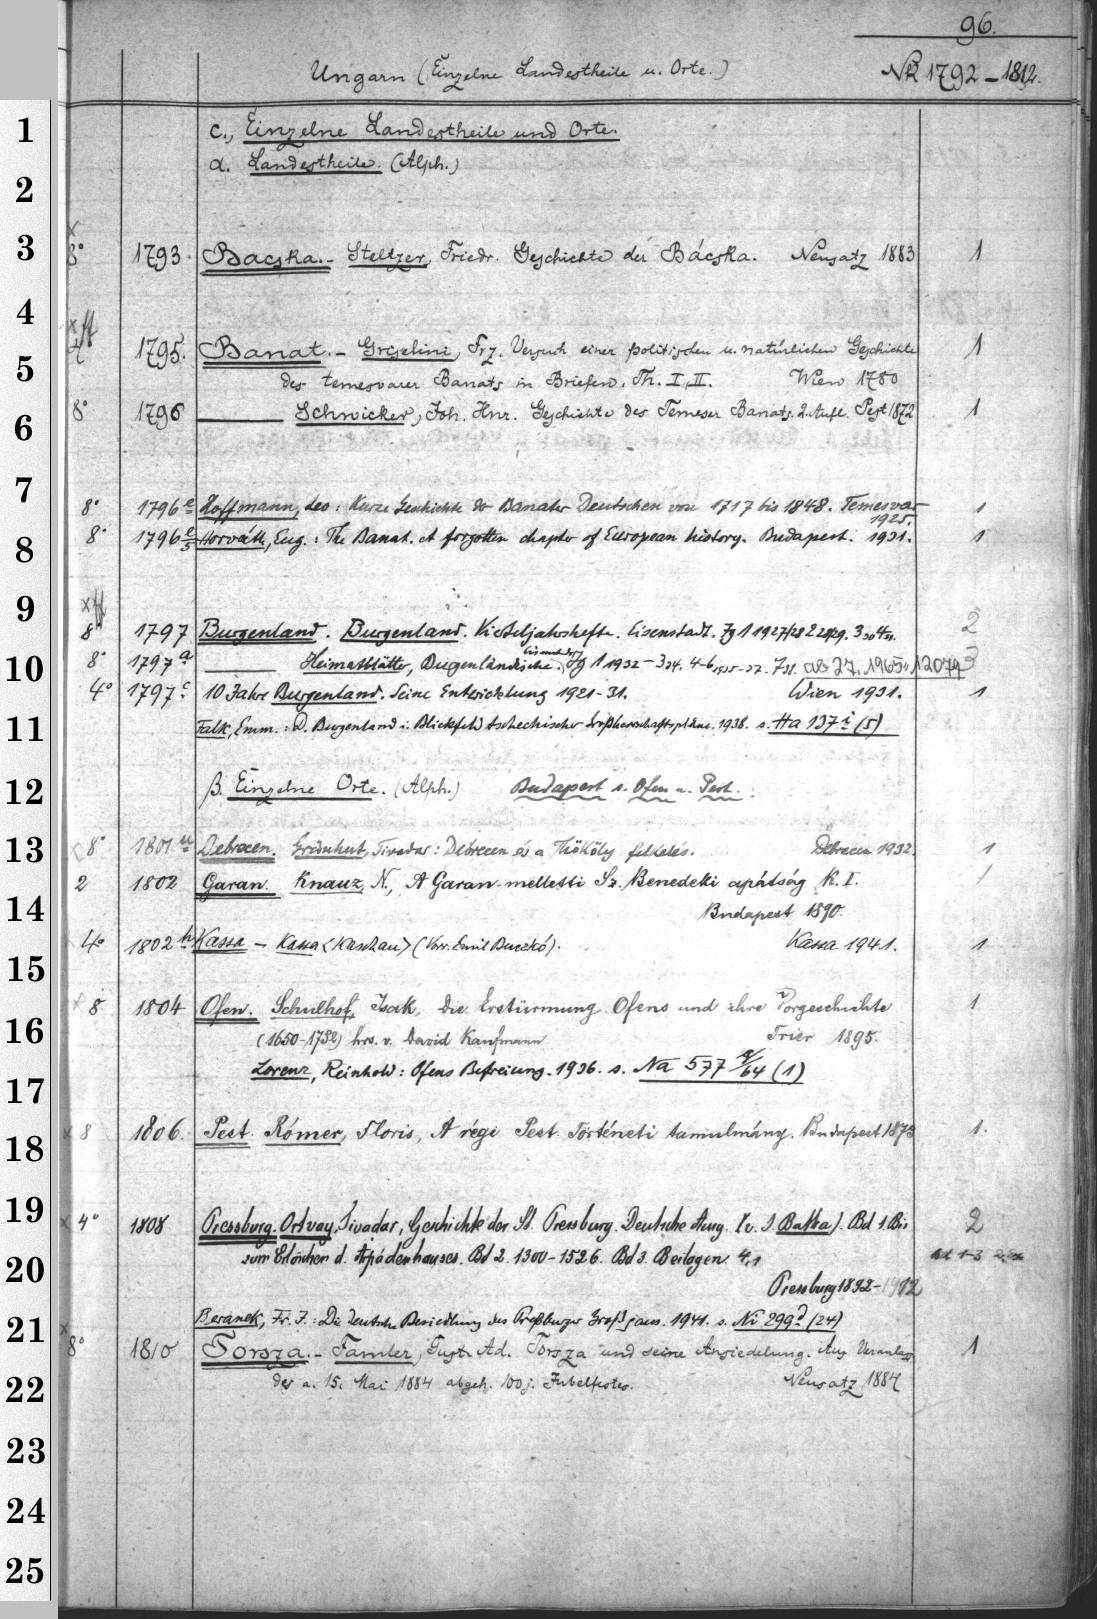 96.
Ungarn (Einzelne Landestheile u. Orte.) NR 1792-1812.
1 c., Einzelne Landestheile und Orte.
α. Landestheile. (Alph.)
2
3 8° 1793 Bacska.- Steltzer, Friedr. Geschichte der Bácska. Neusatz 1883 1
4
1795. Banat.- Griselini, Frz. Versuch einer politischen u. natürlichen Geschichte 1
5 des temesvarer Banats in Briefen. Th. I, II. Wien 1780
6 8° 1796 Schwicker, Joh. Hnr. Geschichte des Temeser Banats. 2. Aufl. Pest 1872 1
7 8° 1796 e Hoffmann, Leo: Kurze Geschichte der Banater Deutschen von 1717 bis 1848. Temesvar 1
1925.
8 8° 1796 e/5 Horváth, Eug.: The Banat. A forgotten chapter of European history. Budapest. 1931. 1
9 8° 1797 Burgenland. Burgenland. Vierteljahrshefte. Eisenstadt. Jg 1 1927/28 2 28/29. 3 30 4 31. 2
10 8° 1797 a Heimatblätter, Burgenländische. Eisenstadt Jg 1 1932-3 34. 4-6 1935-37. 7 38. ab 27. 1965: 12079 3
4° 1797 c 10 Jahre Burgenland. Seine Entwicklung 1921-31. Wien 1931. 1
11 Falk, Emm.: D. Burgenland i. Blickfeld tschechischer 1938. s. Ha 137 i (5)
12 β. Einzelne Orte. (Alph.) Budapest s. Ofen u. Pest.
13 8° 1801 u Debrecen. Grünhut, Tivadar: Debrecen és a Thököly felkelés. Debrecen 1932. 1
2 1802 Garan. Knauz, N., A Garan-melletti Sz. Benedeki apátság K. I. 1
14 Budapest 1890.
4° 1802 h Kassa - Kassa <Kaschau> (Vorr. Emil Buczkó). Kassa 1941. 1
15
8 1804 Ofen. Schulhof, Isak, Die Erstürmung Ofens und ihre Vorgeschichte 1
16 (1650-1732) hrs. v. David Kaufmann Trier 1895.
Lorenz, Reinhold: Ofens Befreiung. 1936. s. Na 577 g/64 (1)
17
18 8 1806. Pest. Rómer, Floris, A régi Pest. Történeti tanulmány. Budapest 1873 1.
19 4° 1808 Pressburg. Ortvay, Tivadar, Geschichte der St. Pressburg. Deutsche Ausg. (v. J. Batka). Bd 1. Bis 2
20 zum Erlöschen d. Arpádenhauses. Bd 2. 1300-1526. Bd 3. Beilagen. 4,1
Pressburg 1892-1912
21 Beranek, Fr. J.: Die deutsche Besiedlung des Preßburger Großgaus. 1941. s. Ni 299 d (24)
8° 1810 Torsza.- Famler, Gust. Ad. Torsza und seine Ansiedelung. Aus Veranlass. 1
22 des a. 15. Mai 1884 abgeh. 100j. Jubelfestes. Neusatz 1884
23
24
25